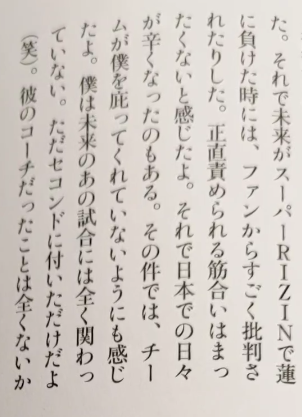 た。それで未来がスーパーRIZINで蓮
に負けた時には、ファンからすごく批判さ
れたりした。正直責められる筋合いはまっ
たくないと感じたよ。それで日本での日々
が辛くなったのもある。その件では、チー
ムが僕を庇ってくれていないようにも感じ
たよ。僕は未来のあの試合には全く関わっ
ていない。ただセコンドに付いただけだよ
（笑）。彼のコーチだったことは全くないか